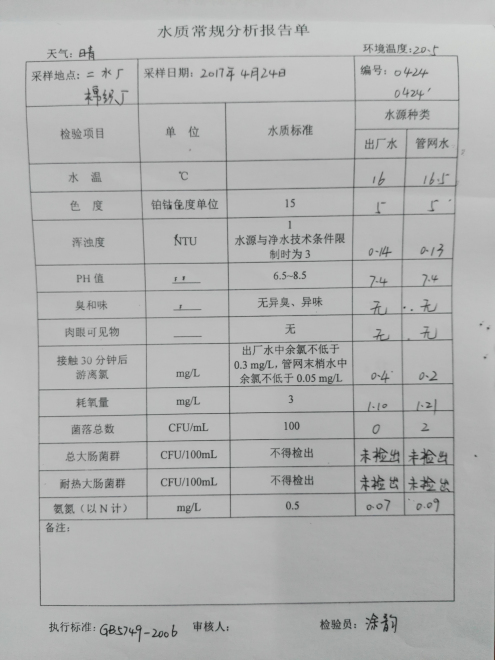 水质常规分析报告单
天气：晴 环境温度：20.5
采样地点：二水厂 采样日期：2017年4月24日 编号：0424
棉织厂 0424'
检验项目 单 位 水质标准 水源种类
出厂水 管网水
水 温 ℃ 16 16.5
色 度 铂钴色度单位 15 5 5
浑浊度 NTU 1
水源与净水技术条件限
制时为 3 0.14 0.13
PH 值 6.5~8.5 7.4 7.4
臭和味 无异臭、异味 无 无
肉眼可见物 无 无 无
接触 30 分钟后
游离氯 mg/L 出厂水中余氯不低于
0.3 mg/L，管网末梢水中
余氯不低于 0.05 mg/L 0.4 0.2
耗氧量 mg/L 3 1.10 1.21
菌落总数 CFU/mL 100 0 2
总大肠菌群 CFU/100mL 不得检出 未检出 未检出
耐热大肠菌群 CFU/100mL 不得检出 未检出 未检出
氨氮（以 N 计） mg/L 0.5 0.07 0.09
备注：
执行标准：GB5749-2006 审核人： 检验员：涂韵